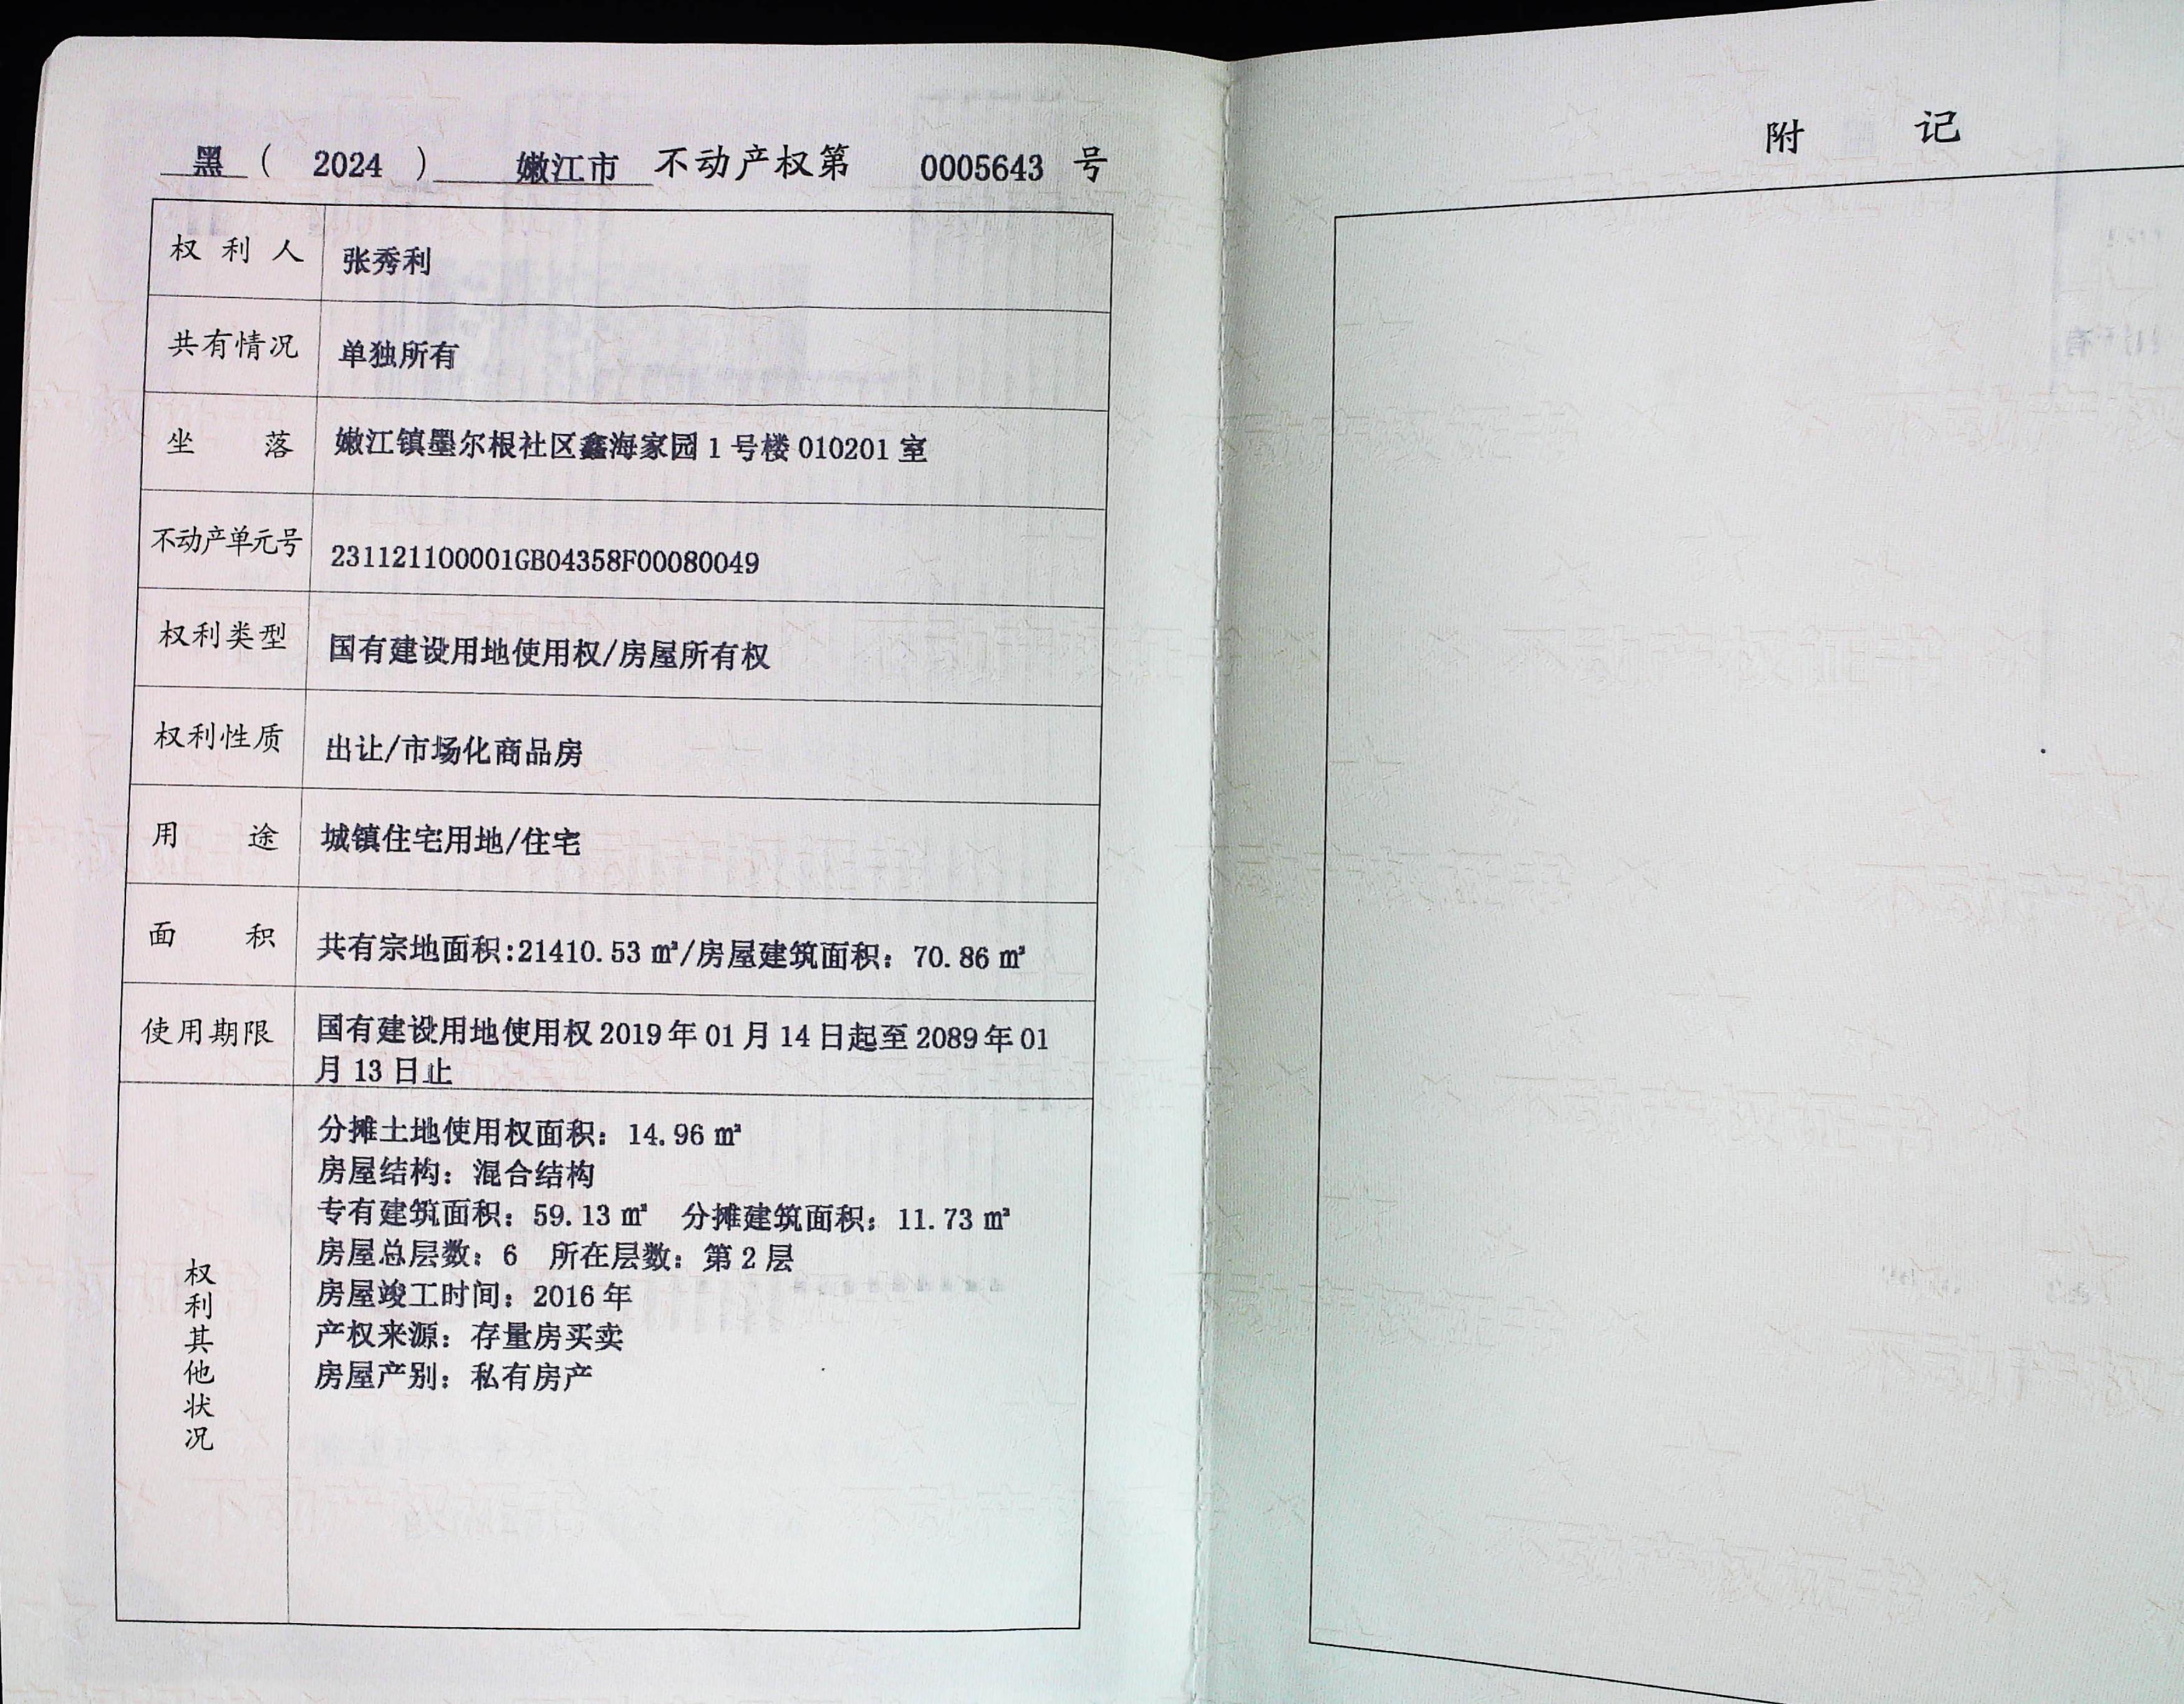 黑 ( 2024 ) 嫩江市 不动产权第 0005643 号
权利人 张秀利
共有情况 单独所有
坐落 嫩江镇墨尔根社区鑫海家园 1 号楼 010201 室
不动产单元号 231121100001GB04358F00080049
权利类型 国有建设用地使用权/房屋所有权
权利性质 出让/市场化商品房
用途 城镇住宅用地/住宅
面积 共有宗地面积:21410.53 ㎡/房屋建筑面积: 70.86 ㎡
使用期限 国有建设用地使用权 2019 年 01 月 14 日起至 2089 年 01
月 13 日止
权利其他状况
分摊土地使用权面积: 14.96 ㎡
房屋结构: 混合结构
专有建筑面积: 59.13 ㎡ 分摊建筑面积: 11.73 ㎡
房屋总层数: 6 所在层数: 第 2 层
房屋竣工时间: 2016 年
产权来源: 存量房买卖
房屋产别: 私有房产
附记